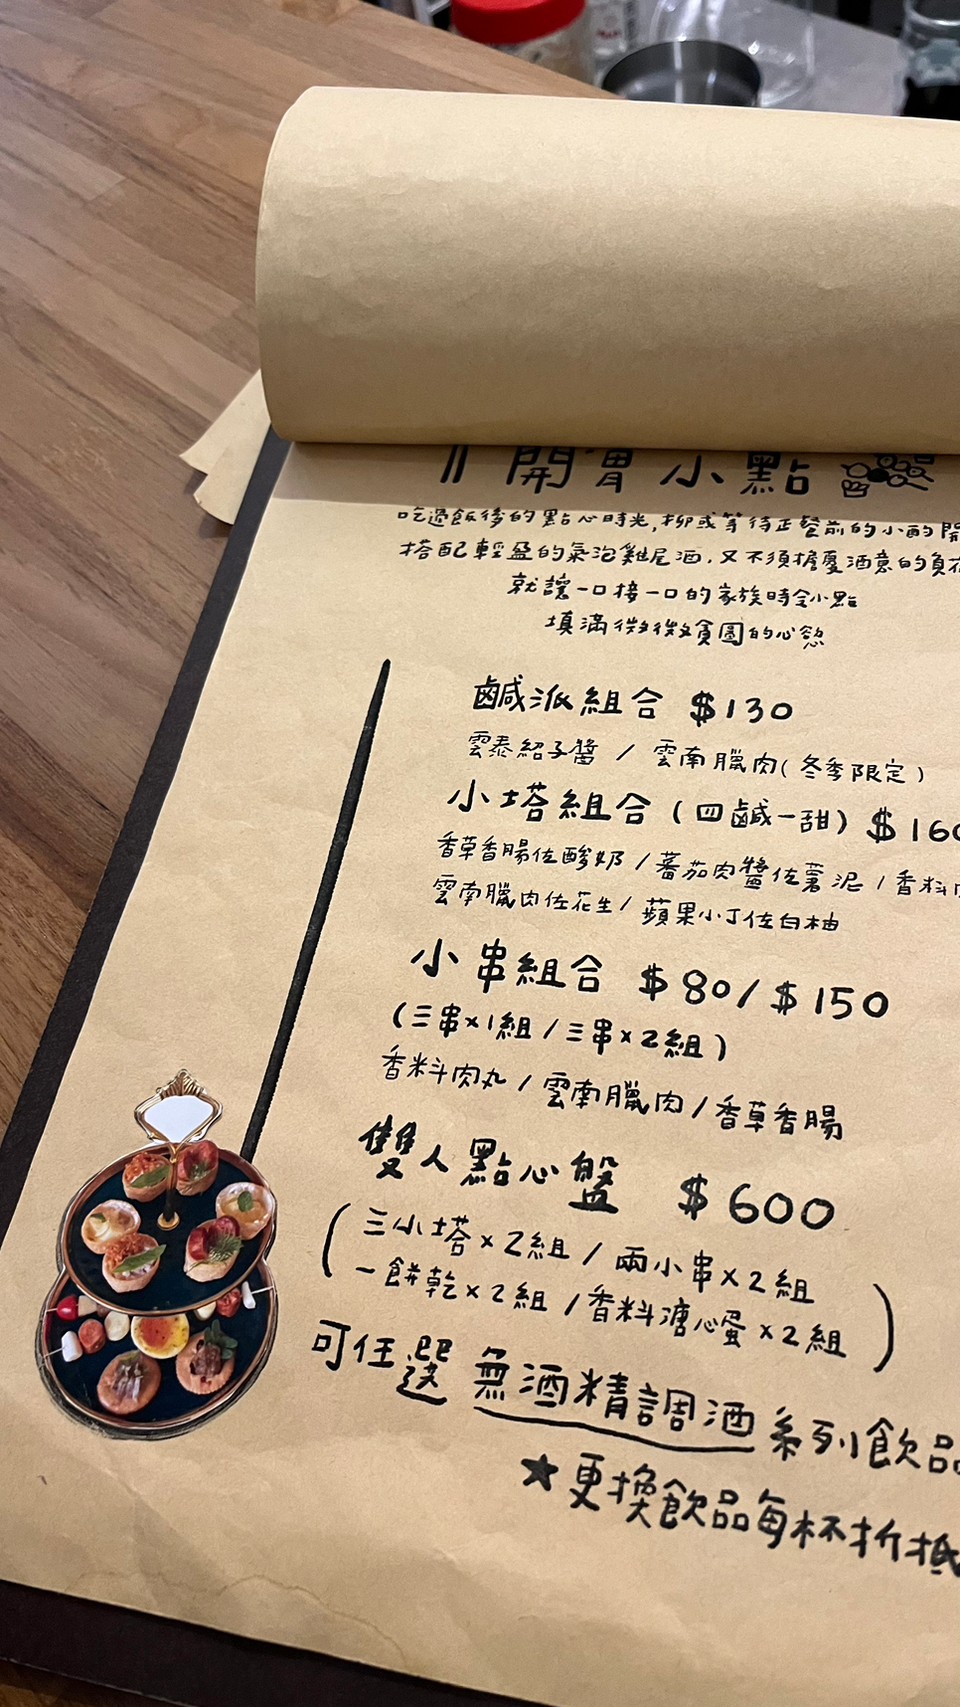 開胃小點
吃過飯後的點心時光,抑或等待正餐前的小酌開
搭配輕盈的氣泡雞尾酒,又不須擔憂酒意的負荷
就讓一口接一口的家族時令小點
填滿微微貪圖的心慾
鹹派組合 $130
雲泰紹子醬 / 雲南臘肉(冬季限定)
小塔組合(四鹹一甜) $160
香草香腸佐酸奶 / 蕃茄肉醬佐薯泥 / 香料肉
雲南臘肉佐花生 / 蘋果小丁佐白柚
小串組合 $80/$150
(三串x1組 / 三串x2組)
香料肉丸 / 雲南臘肉 / 香草香腸
雙人點心盤 $600
(三小塔x2組 / 兩小串x2組
一餅乾x2組 / 香料溏心蛋x2組)
可任選 無酒精調酒系列飲品
★更換飲品每杯折抵